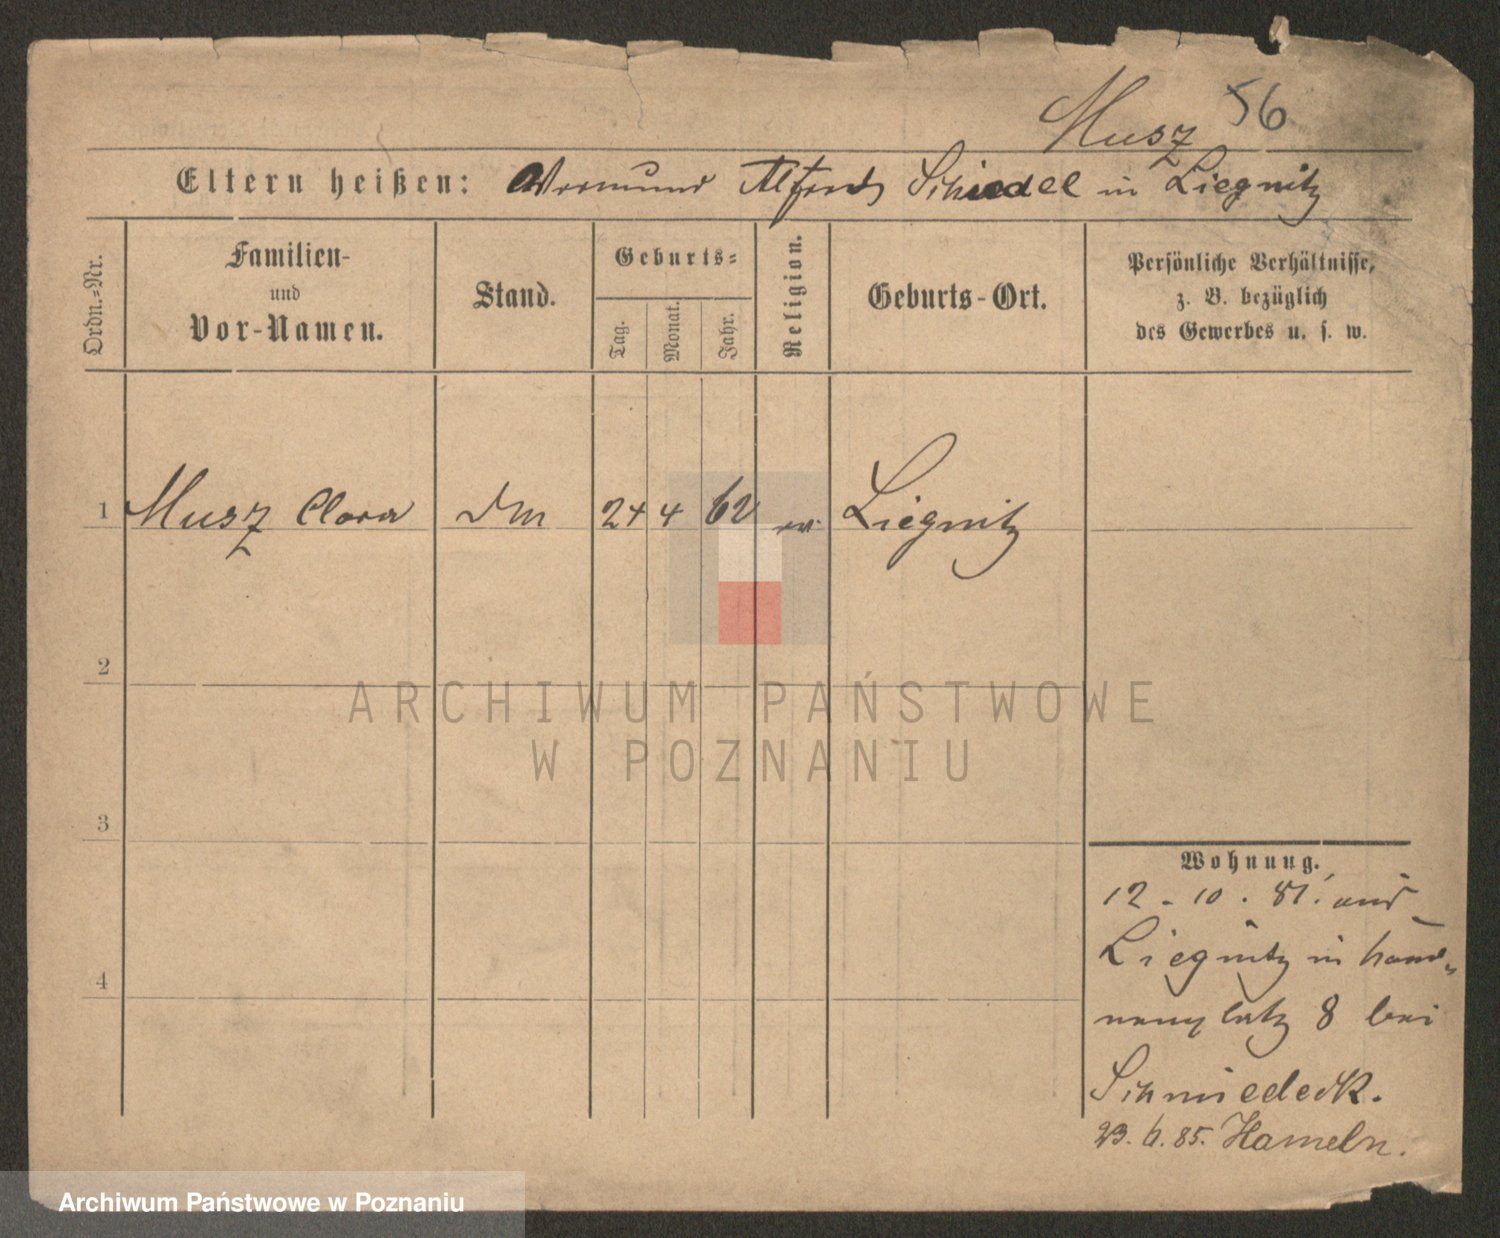 Musz 56
Eltern heißen: Vormund Alfred Schiedel in Liegnitz
Ordn.-Nr.
Familien-
und
Vor-Namen.
Stand.
Geburts-
Tag.
Monat.
Jahr.
Religion.
Geburts-Ort.
Persönliche Verhältnisse,
z. B. bezüglich
des Gewerbes u. s. w.
1 Musz Clara 24 4 62 ev. Liegnitz
2
3
4
ARCHIWUM PAŃSTWOWE
W POZNANIU
Wohnung.
12 - 10 . 81. aus
Liegnitz in
8 bei
Schmiedeck.
23. 6. 85. Hameln.
Archiwum Państwowe w Poznaniu